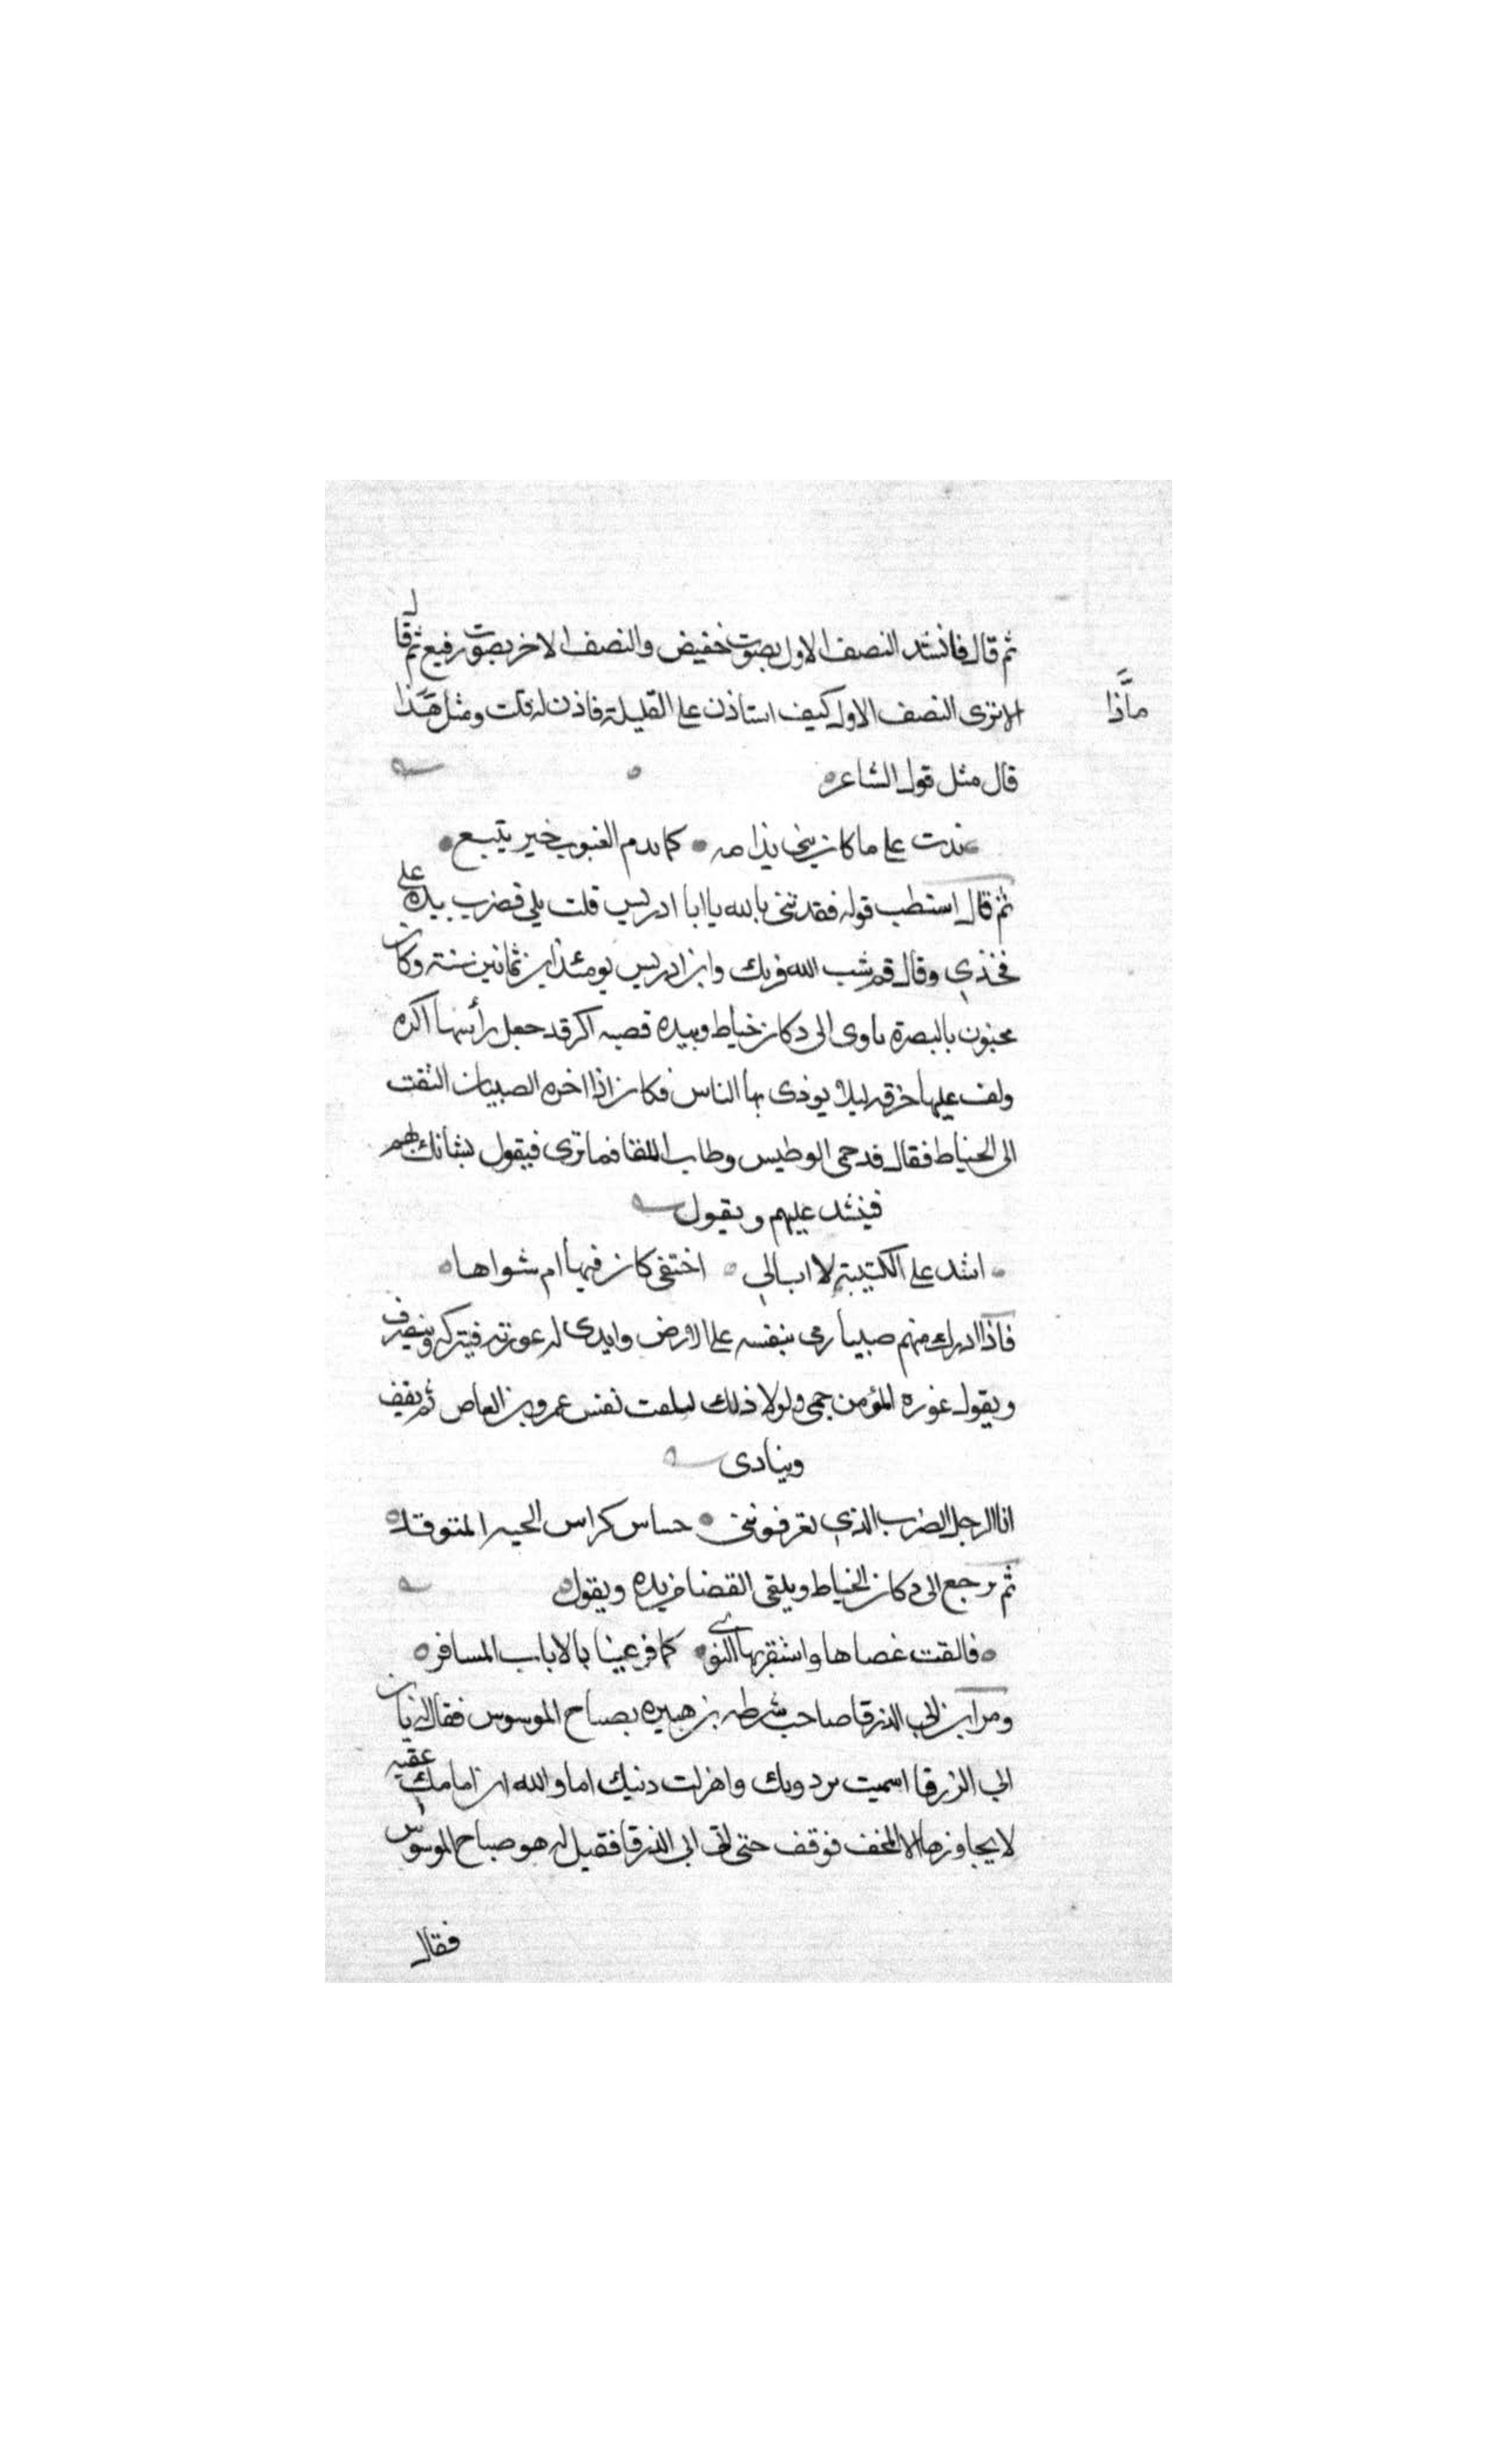 ثم قال فانشد النصف الاول بصوت خفيض والنصف الاخر بصوت رفيع ثم قال
الا ترى النصف الاول كيف استاذن على القليلة فاذن له قلت ومثل هذا
ماذا
قال مثل قول الشاعر
ندمت على ما كان كما يدم المغبون خير يتبع
ثم قال استطب قوله فقدتنى بالله يا ابا ادريس قلت بلى فضرب بيده على
فخذي وقال قم شب الله قربك وابن ادريس يومئذ ابن ثمانين سنة وكان
مجنون بالبصرة ياوى الى دكان خياط وبيده قصبه اكر قد جعل رأسها اكره
ولف عليها خرقه ليلا يوذى بها الناس فكان اذا اخره الصبيان التفت
الى الخياط فقال قد حمى الوطيس وطاب اللقا فما ترى فيقول بشانك بهم
فيشد عليهم ويقول
اشد على الكتيبة لا ابالي احتفى كان فيها ام سواها
فاذا ادرك منهم صبيا رمى بنفسه على الارض وابدى له عورته فيتركه وينصرف
ويقول عوره المؤمن حمى ولولا ذلك لتلفت نفس عمرو بن العاص ثم يقف
وينادى
انا الرجل الضرب الذي تعرفوننى حساس كراس الحيه المتوقد
ثم يرجع الى دكان الخياط ويلقى القصا من يده ويقول
فالقت عصاها واستقر بها النوى كما قر عينا بالاياب المسافر
ومر ابن ابي الزرقا صاحب شرطه بن هبيره بصباح الموسوس فقال له يابن
ابي الزرقا اسمنت بردونك واهزلت دينك اما والله ان امامك عقبه
لا يجاوزها الا المخف فوقف حتى ابن ابي الزرقا فقيل له هو صباح الموسوس
فقال